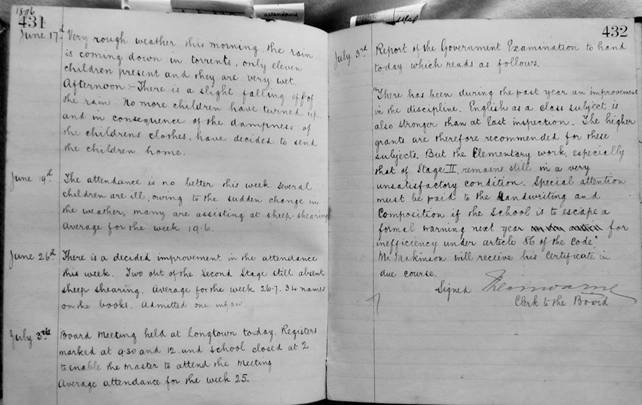 1896
431
June 17th Very rough weather this morning the rain
is coming down in torrents, only eleven
children present and they are very wet.
Afternoon:- There is a slight falling off of
the rain. No more children have turned up
and in consequence of the dampness of
the childrens clothes, have decided to send
the children home.
June 19th The attendance is no better this week several
children are ill, owing to the sudden change in
the weather, many are assisting at sheep shearing
Average for the week 19.6.
June 26th There is a decided improvement in the attendance
this week. Two out of the Second Stage still absent
sheep shearing. Average for the week 26.7. 34 names
on the books. Admitted one
July 3rd Board Meeting held at Longtown today. Registers
marked at 9.30 and 12. and School closed at 2
to enable the Master to attend the Meeting
Average attendance for the week 25.
attendance
432
July 3rd Report of the Government Examination to hand
today which reads as follows.
"There has been during the past year an improvement
in the discipline. English as a class subject is
also stronger than at last inspection. The higher
grants are therefore recommended for these
subjects. But the Elementary work, especially
that of Stage II, remains still in a very
unsatisfactory condition. Special attention
must be paid to the Handwriting and
Composition if the School is to escape a
formal warning next year for
inefficiency under article 86 of the Code".
Mr Parkinson will receive his Certificate in
due course.
Signed
Clerk to the Board